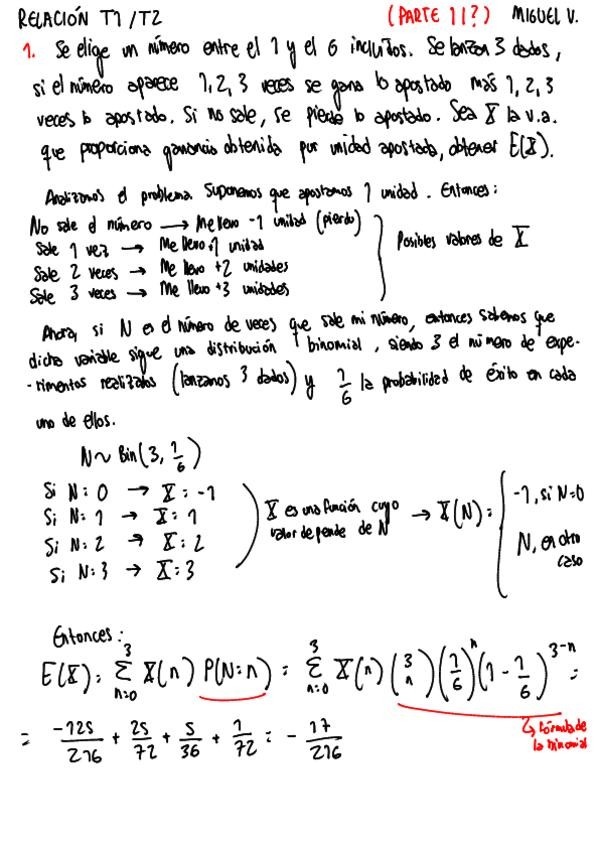 RELACIÓN T1/T2 (PARTE 1I?) MIGUEL V.
1. Se elige un número entre el 1 y el 6 incluidos. Se lanzan 3 dados,
si el número aparece 1, 2, 3 veces se gana lo apostado más 1, 2, 3
veces lo apostado. Si no sale, se pierde lo apostado. Sea X la v.a.
que proporciona ganancia obtenida por unidad apostada, obtener E(X).
Analizamos el problema. Suponemos que apostamos 1 unidad. Entonces:
No sale el número → Me llevo -1 unidad (pierdo)
Sale 1 vez → Me llevo +1 unidad
Sale 2 veces → Me llevo +2 unidades
Sale 3 veces → Me llevo +3 unidades
Posibles valores de X
Ahora, si N es el número de veces que sale mi número, entonces sabemos que
dicha variable sigue una distribución binomial, siendo 3 el número de expe-
-rimentos realizados (lanzamos 3 dados) y 1/6 la probabilidad de éxito en cada
uno de ellos.
N ~ Bin(3, 1/6)
Si N = 0 → X = -1
Si N = 1 → X = 1
Si N = 2 → X = 2
Si N = 3 → X = 3
X es una función cuyo
valor depende de N
→ X(N) = { -1, si N=0
N, en otro
caso
Entonces:
E(X) = ∑_{n=0}^{3} X(n) P(N=n) = ∑_{n=0}^{3} X(n) (3 n) (1/6)^n (1 - 1/6)^{3-n} =
↳ fórmula de
la binomial
= -125/216 + 25/72 + 5/36 + 1/72 = - 17/216